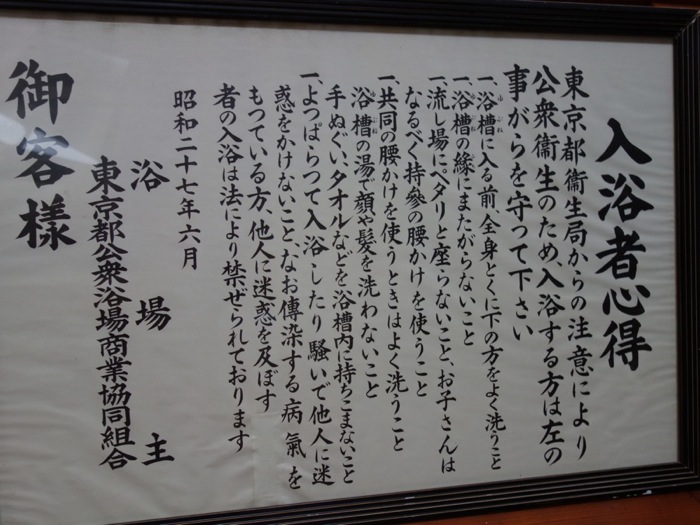 入浴者心得
東京都衞生局からの注意により
公衆衞生のため、入浴する方は左の
事がらを守って下さい
一、浴槽に入る前、全身とくに下の方をよく洗うこと
一、浴槽の縁にまたがらないこと
一、流し場にペタリと座らないこと、お子さんは
なるべく持參の腰かけを使うこと
一、共同の腰かけを使うときはよく洗うこと
浴槽の湯で顔や髪を洗わないこと
手ぬぐい、タオルなどを浴槽内に持ちこまないこと
一、よつぱらつて入浴したり騒いで他人に迷
惑をかけないこと、なお傳染する病氣を
もつている方、他人に迷惑を及ぼす
者の入浴は法により禁ぜられております
昭和二十七年六月
浴場主
東京都公衆浴場商業協同組合
御客様